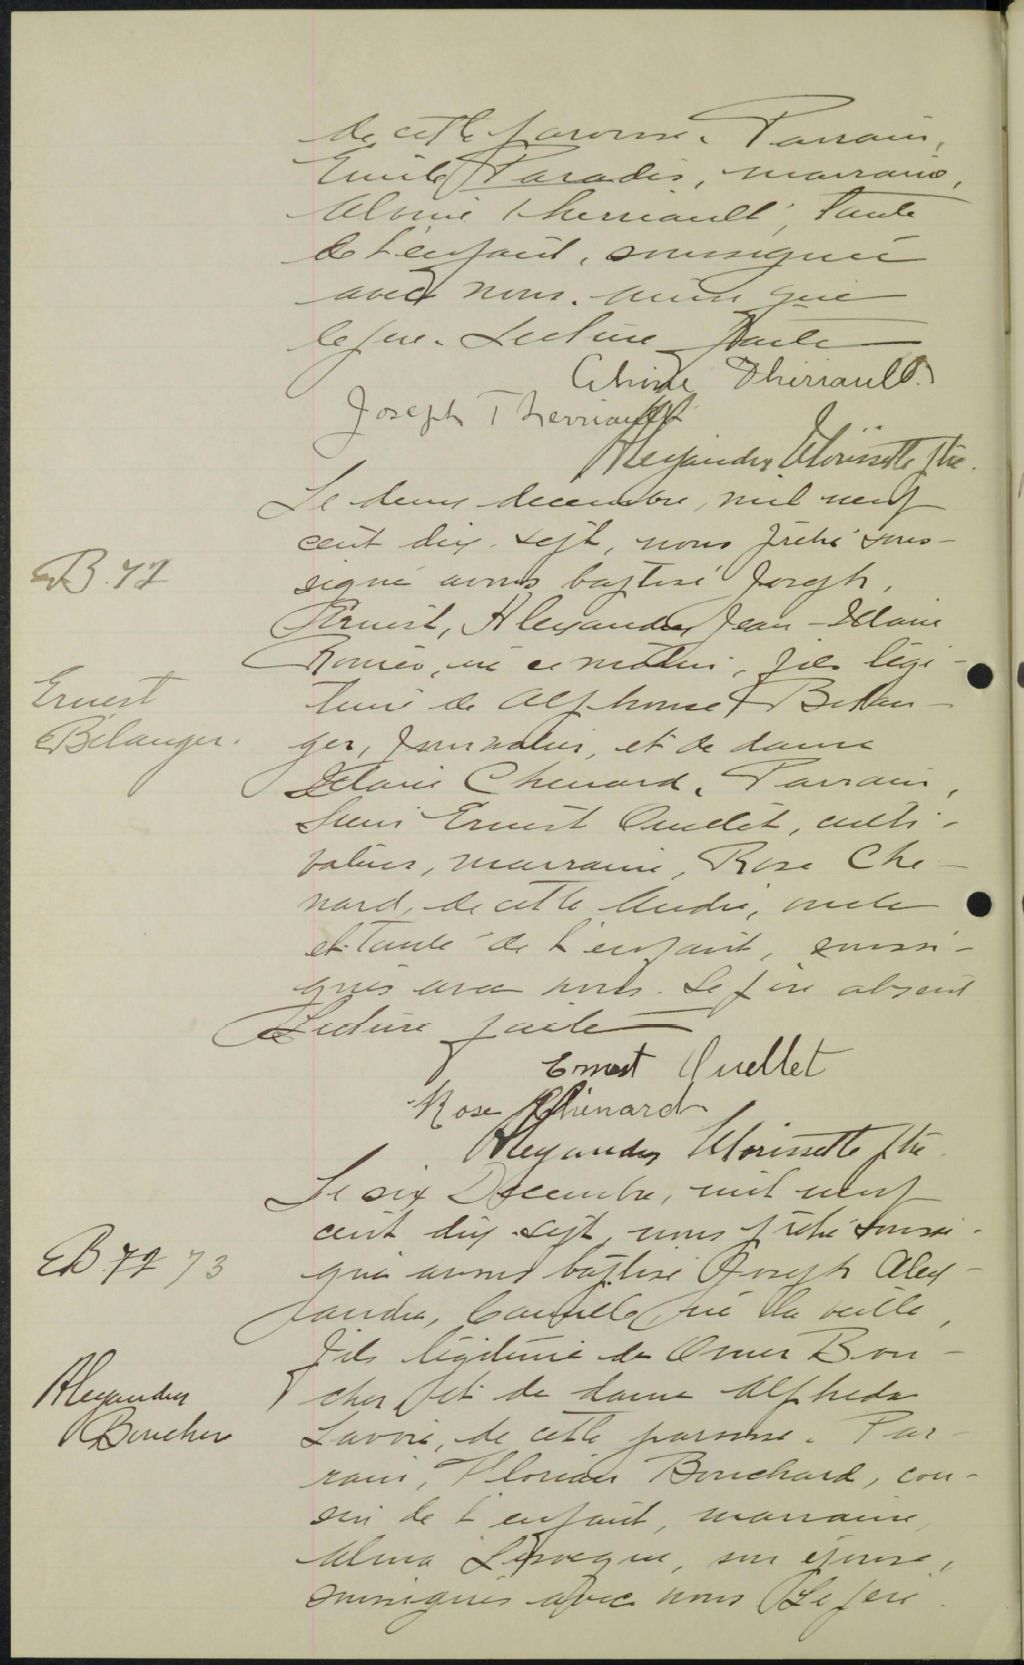 de cette paroisse. Parrain,
Emile Paradis, marraine,
Therriault, tante
de l'enfant, soussignée
avec nous. ainsi que
le père. Lecture faite
Therriault.
Joseph Therriault
Alexandre Morissette ptre.
Le deux decembre, mil neuf
cent dix-sept, nous prêtre sous-
B. 72
signé avons baptisé Joseph,
Ernest, Alexandre, Jean-Marie
Roméo, né ce matin, fils légi-
Ernest
time de Alphonse Bélan-
Bélanger.
ger, journalier, et de dame
Marie Chenard. Parrain,
Sieur Ernest Ouellet, culti-
vateur, marraine, Rose Che-
nard, de cette oncle
et tante de l'enfant, soussi-
gnés avec nous. Le père absent
Lecture faite
Ernest Ouellet
Rose Chénard
Alexandre Morissette ptre.
Le six Decembre, mil neuf
cent dix-sept, nous prêtre soussi-
B 72 73
gné avons baptisé Joseph Alex-
andre, Camille, né la veille,
fils légitime de Omer Bou-
Alexandre
cher et de dame Alphéda
Boucher
Lavoie, de cette paroisse. Par-
rain, Florian Bouchard, cou-
sin de l'enfant, marraine,
Alma Levesque, son épouse,
soussignés avec nous. Le père